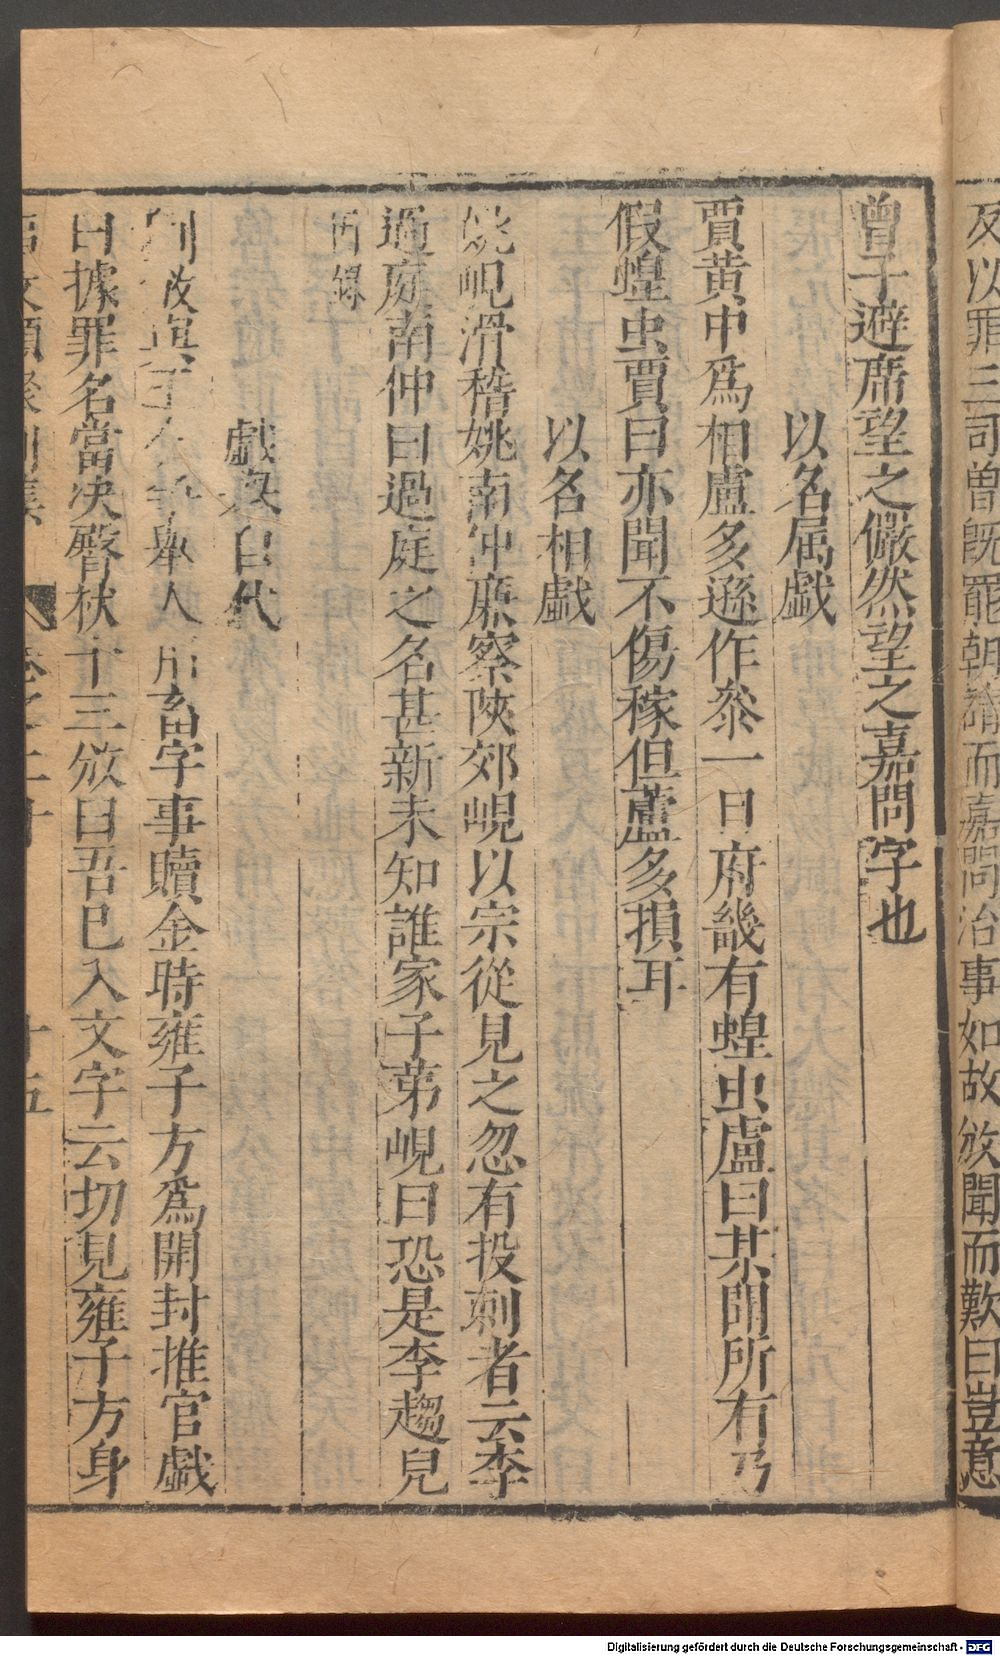 及以罪三司曾旣罷朝請而嘉問治事如故攽聞而歎曰豈意
曾子避席望之儼然望之嘉問字也
以名屬戲
賈黃中爲相盧多遜作叅一日府畿有蝗虫盧曰某聞所有乃
假蝗虫賈曰亦聞不傷稼但蘆多損耳
以名相戲
姚峴滑稽姚南仲廉察陝郊峴以宗從見之忽有投刺者云李
過庭南仲曰過庭之名甚新未知誰家子弟峴曰恐是李趨兒
因錄
戲 自代
劉攽 舉人 畜字事贖金時雍子方爲開封推官戲
曰據罪名當決臀杖十三攽曰吾已入文字云切見雍子方身
文類聚別集
卷之二十
十五
Digitalisierung gefördert durch die Deutsche Forschungsgemeinschaft - DFG